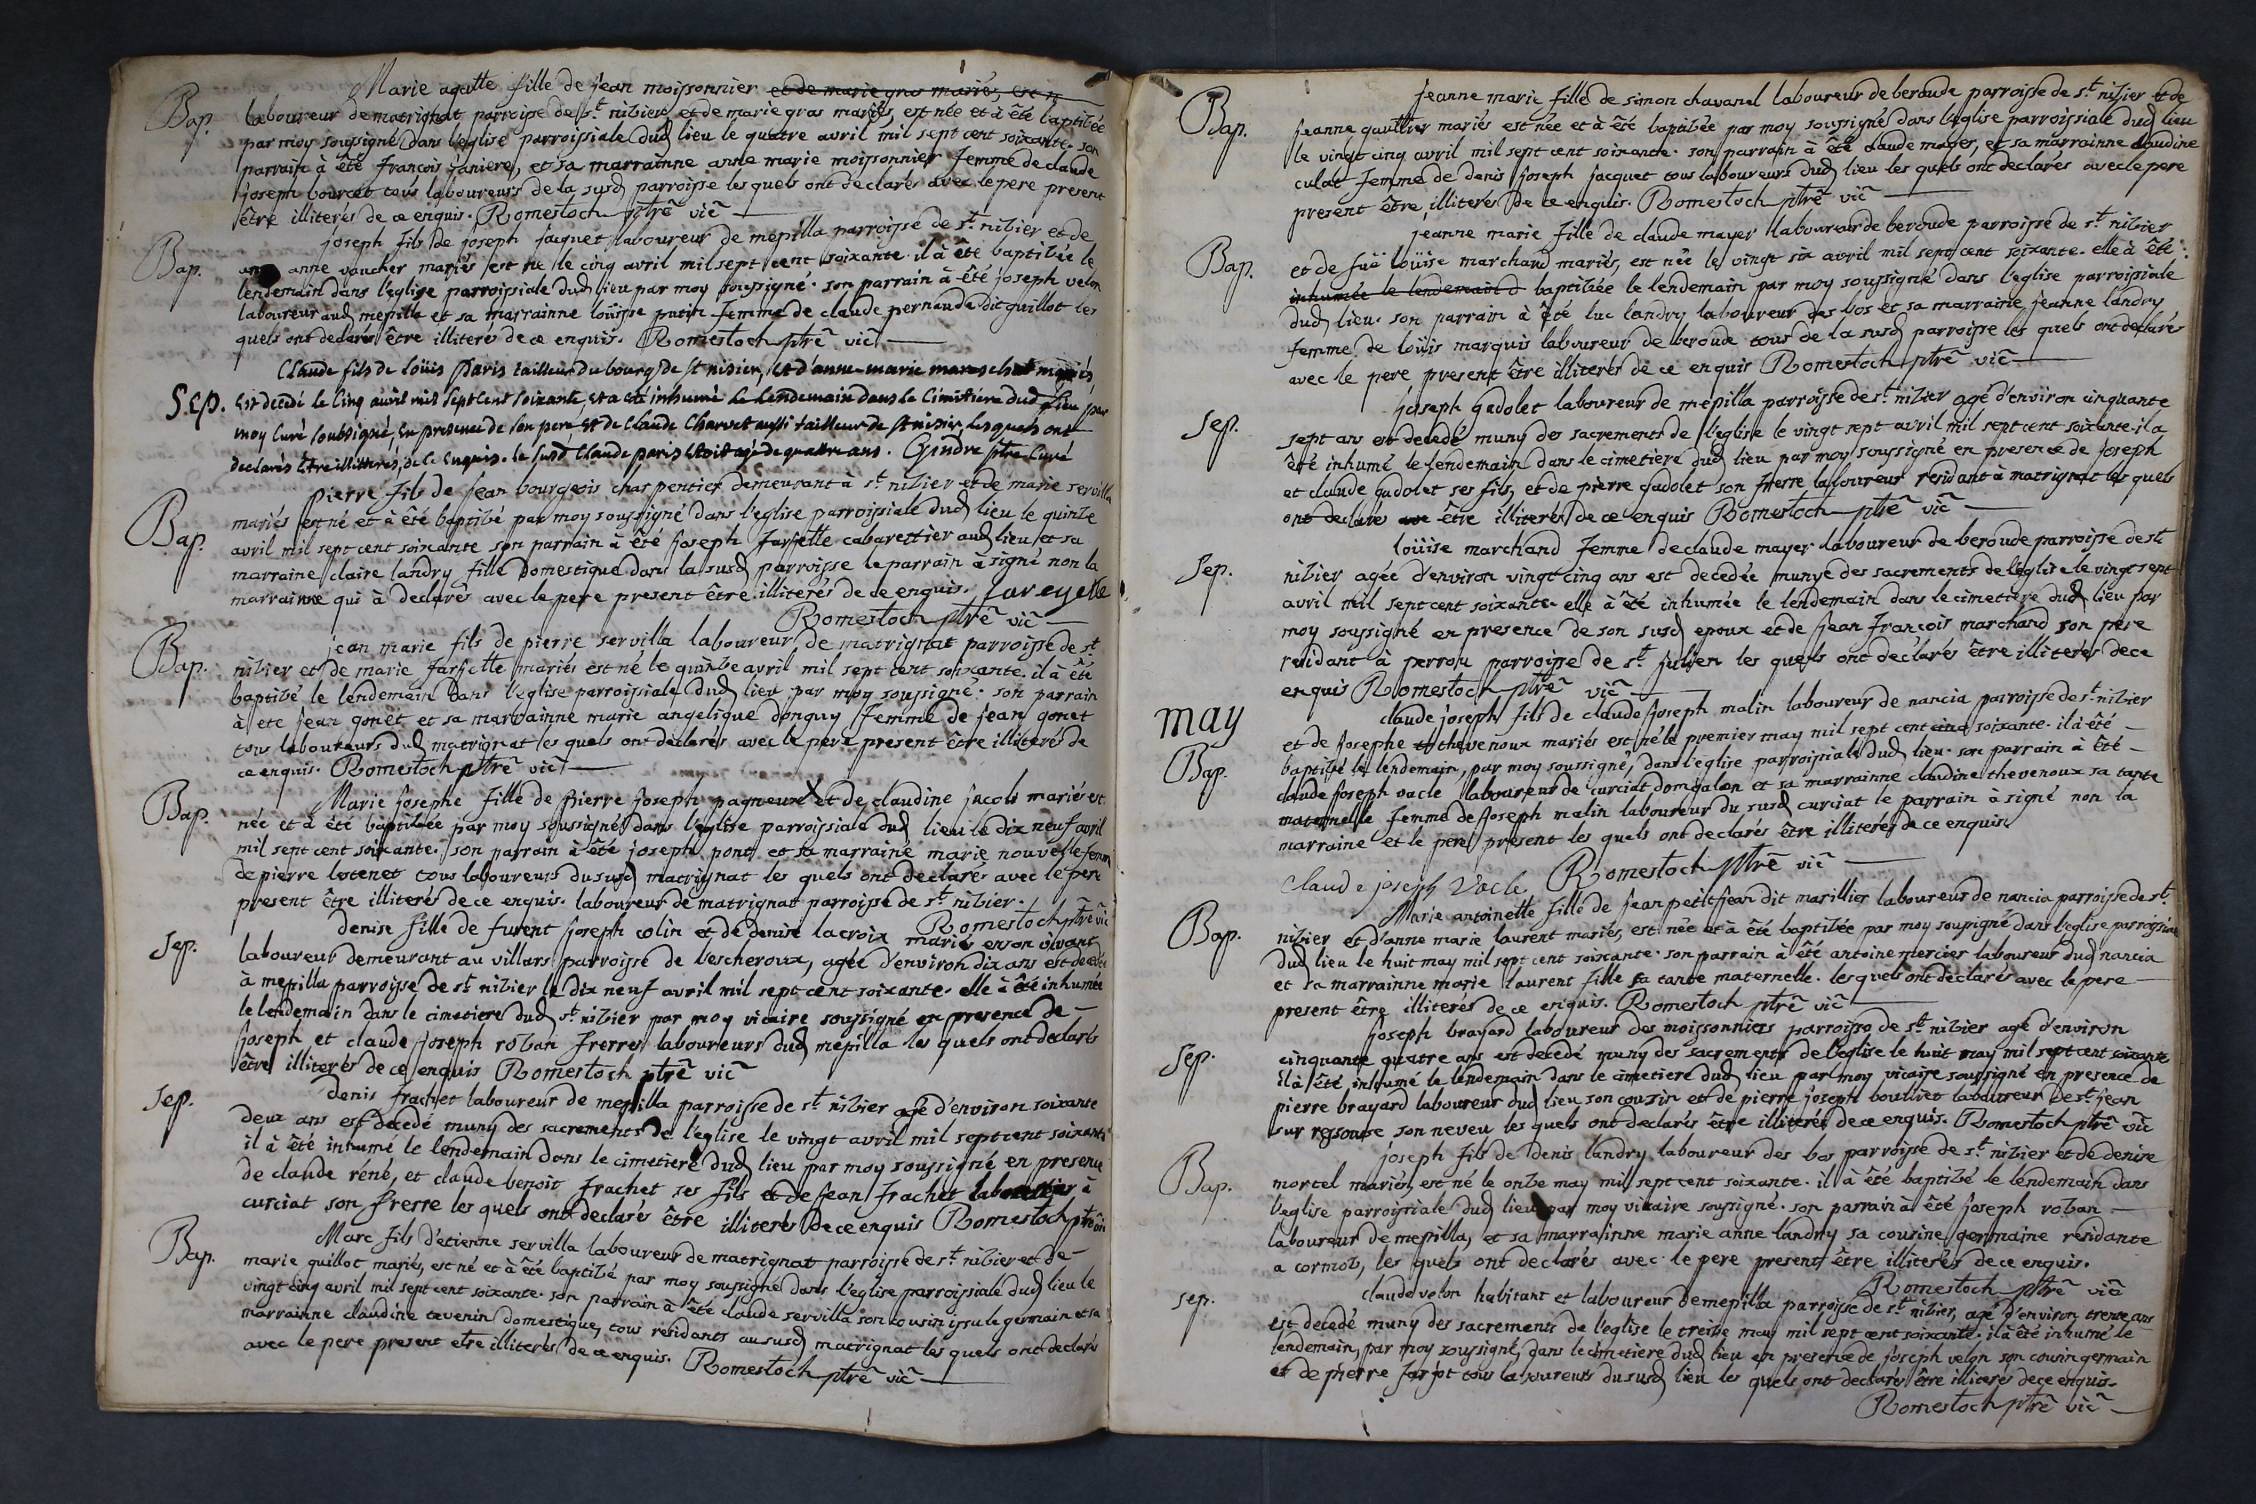 Marie agatte fille de jean moissonnier et de marie gras mariés, est n
Bap.
laboureur de matrignat parroipe de st nizier et de marie gras mariés, est née et à été baptizée
par moy soussigné dans l'eglise parroissiale dud lieu le quatre avril mil sept cent soixante. son
parrain à été francois janiere, et sa marrainne anne marie moissonnier femme de claude
joseph bourcet tous laboureurs de la susd parroisse les quels ont declarés avec le pere present
être illiterés de ce enquis. Romestoch ptrê vic̃
joseph fils de joseph jacquet laboureur de mepilla parroisse de st nizier et de
Bap.
anne voucher mariés est né le cinq avril mil sept cent soixante. il à été baptizée le
lendemain dans l'eglise parroissiale dud lieu par moy soussigné. son parrain à été joseph velon
laboureur aud mepilla et sa marrainne loüisse putin femme de claude pernaude dit guillot les
quels ont declarés être illiterés de ce enquis. Romestoch ptrê vic̃
Claude fils de loüis Paris tailleur du bourg de St nisier, et d'anne-marie mareschal mariés
Sep.
est decedé le cinq auril mil sept cent soixante, et a eté inhumé le lendemain dans le Cimitiere dud lieu par
moy Curé soubsigné, en presence de son pere et de Claude Charvet aussi tailleur de St nisier lesquels ont
declarés être illitterés, de ce enquis. le susd Claude paris étoit agé de quattre ans. Gindre ptre Curé
pierre fils de jean bourgeois charpentier demeurant à st nizier et de marie servilla
Bap.
mariés est né et à été baptizé par moy soussigné dans l'eglise parroissiale dud lieu le quinze
avril mil sept cent soixante son parrain à été joseph farjette cabarettier aud lieu et sa
marraine claire landry fille domestique dans la susd parroisse le parrain à signé non la
marrainne qui à declarés avec le pere present être illiterés de ce enquis. fareyette
Romestoch ptrê vic̃
jean marie fils de pierre servilla laboureur de matrignat parroisse de st
Bap.
nizier et de marie farjette mariés est né le quinze avril mil sept cent soixante. il à été
baptizé le lendemain dans l'eglise parroissiale dud lieu par moy soussigné. son parrain
à eté jean gonet et sa marrainne marie angelique donguy femme de jean gonet
tous laboureurs dud matrignat les quels ont declarés avec le pere present être illiterés de
ce enquis. Romestoch ptrê vic̃
Marie josephe fille de pierre joseph pagneux X et de claudine jacob mariés est
Bap.
née et à été baptizée par moy soussigné dans l'eglise parroissiale dud lieu le dix neuf avril
mil sept cent soixante. son parrain à été joseph pont et sa marrainé marie nouvelle femme
de pierre lotenet tous laboureurs du susd matrignat les quels ont declarés avec le pere
present être illiterés de ce enquis. laboureur de matrignat parroisse de st nizier.
Romestoch ptrê vic̃
denise fille de furent joseph colin et de denise lacroix mariés en son vivant
Sep.
laboureur demeurant au villars parroisse de lescheroux, agée d'environ dix ans est decedée
à mepilla parroisse de st nizier le dix neuf avril mil sept cent soixante. elle à été inhumée
le lendemain dans le cimetiere dud st nizier par moy vicaire soussigné en presence de
joseph et claude joseph roban frerres laboureurs dud mepilla les quels ont declarés
être illiterés de ce enquis Romestoch ptrê vic̃
denis frachet laboureur de mepilla parroisse de st nizier agé d'environ soixante
Sep.
deux ans est decedé muny des sacrements de l'eglise le vingt avril mil sept cent soixante
il à été inhumé le lendemain dans le cimetiere dud lieu par moy soussigné en presence
de claude réné, et claude benoit frachet ses fils et de jean frachet laboureur à
curciat son frerre les quels ont declarés être illiterés de ce enquis Romestoch ptrê vic̃
Marc fils d'etienne servilla laboureur de matrignat parroisse de st nizier et de
Bap.
marie guillot mariés, est né et à été baptizé par moy soussigné dans l'eglise parroissiale dud lieu le
vingt cinq avril mil sept cent soixante. son parrain à été claude servilla son cousin issu le germain et sa
marrainne claudine tevenin domestique, tous residants au susd matrignat les quels ont declarés
avec le pere present etre illiterés de ce enquis. Romestoch ptrê vic̃
jeanne marie fille de simon chavanel laboureur de beroude parroisse de st nizier et de
Bap.
jeanne gaultier mariés est née et à été baptizée par moy soussigné dans l'eglise parroissiale dud lieu
le vingt cinq avril mil sept cent soixante. son parrain à été claude mayer, et sa marrainne claudine
culat femme de denis joseph jacquet tous laboureurs dud lieu les quels ont declarés avec le pere
present être illiterés de ce enquis. Romestoch ptrê vic̃
jeanne marie fille de claude mayer laboureur de beroude parroisse de st nizier
Bap.
et de fuë loüise marchand mariés, est née le vingt six avril mil sept cent soixante. elle à été
inhumée le lendemain d baptizée le lendemain par moy soussigné dans l'eglise parroissiale
dud lieu. son parrain à été luc landry laboureur des bos et sa marraine jeanne landry
femme de loüis marquis laboureur de beroude tous de la susd parroisse les quels ont declarés
avec le pere present être illiterés de ce enquis Romestoch ptrê vic̃
joseph gadolet laboureur de mepilla parroisse de st nizier agé d'environ cinquante
Sep.
sept ans est decedé muny des sacrements de l'eglise le vingt sept avril mil sept cent soixante. il a
été inhumé le lendemain dans le cimetiere dud lieu par moy soussigné en presence de joseph
et claude gadolet ses fils, et de pierre gadolet son frerre laboureur residant à matrignat les quels
ont declarés ave être illiterés de ce enquis Romestoch ptrê vic̃
loüise marchand femme de claude mayer laboureur de beroude parroisse de st
Sep.
nizier agée d'environ vingt cinq ans est decedée munye des sacrements de l'eglise le vingt sept
avril mil sept cent soixante. elle à été inhumée le lendemain dans le cimetiere dud lieu par
moy soussigné en presence de son susd epoux et de jean francois marchand son pere
residant à perrou parroisse de st julien les quels ont declarés être illiterés de ce
enquis Romestoch ptrê vic̃
may
claude joseph fils de claude joseph malin laboureur de nancia parroisse de st nizier
Bap.
et de josephe th thevenoux mariés est né le premier may mil sept cent cinq soixante. il à été
baptizé le lendemain, par moy soussigné, dans l'eglise parroissiale dud lieu. son parrain à été
claude joseph vacle laboureur de curciat domgalon et sa marrainne claudine thevenoux sa tante
maternelle femme de joseph malin laboureur du susd curciat le parrain à signé non la
marraine et le pere present les quels ont declarés être illiterés de ce enquis
Claude joseph Vacle Romestoch ptrê vic̃
Marie antoinette fille de jean petitjean dit marillier laboureur de nancia parroisse de st
Bap.
nizier et d'anne marie laurent mariés, est née et à été baptizée par moy soussigné dans l'eglise parroissiale
dud lieu le huit may mil sept cent soixante. son parrain à été antoine mercier laboureur dud nancia
et sa marrainne marie laurent fille sa tante maternelle. les quels ont declarés avec le pere
present être illiterés de ce enquis. Romestoch ptrê vic̃
joseph brayard laboureur des moissonniers parroisse de st nizier agé d'environ
Sep.
cinquante quatre ans est decedé muny des sacrements de l'eglise le huit may mil sept cent soixante
il à été inhumé le lendemain dans le cimetiere dud lieu par moy vicaire soussigné en presence de
pierre brayard laboureur dud lieu son couzin et de pierre joseph boullier laboureur de st jean
sur ressouse son neveu les quels ont declarés être illiterés de ce enquis. Romestoch ptrê vic̃
joseph fils de denis landry laboureur des bos parroisse de st nizier et de denise
Bap.
mortel mariés, est né le onze may mil sept cent soixante. il à été baptizé le lendemain dans
l'eglise parroissiale dud lieu par moy vicaire soussigné. son parrain à été joseph roban
laboureur de mepilla, et sa marrainne marie anne landry sa cousine germaine residante
a cormoz, les quels ont declarés avec le pere present être illiterés de ce enquis.
Romestoch ptrê vic̃
claude velon habitant et laboureur de mepilla parroisse de st nizier, agé d'environ trente ans
sep.
est decedé muny des sacrements de l'eglise le treize may mil sept cent soixante. il à été inhumé le
lendemain, par moy soussigné, dans le cimetiere dud lieu en presence de joseph velon son cousin germain
et de pierre farjot tous laboureurs du susd lieu les quels ont declarés être illiterés de ce enquis.
Romestoch ptrê vic̃